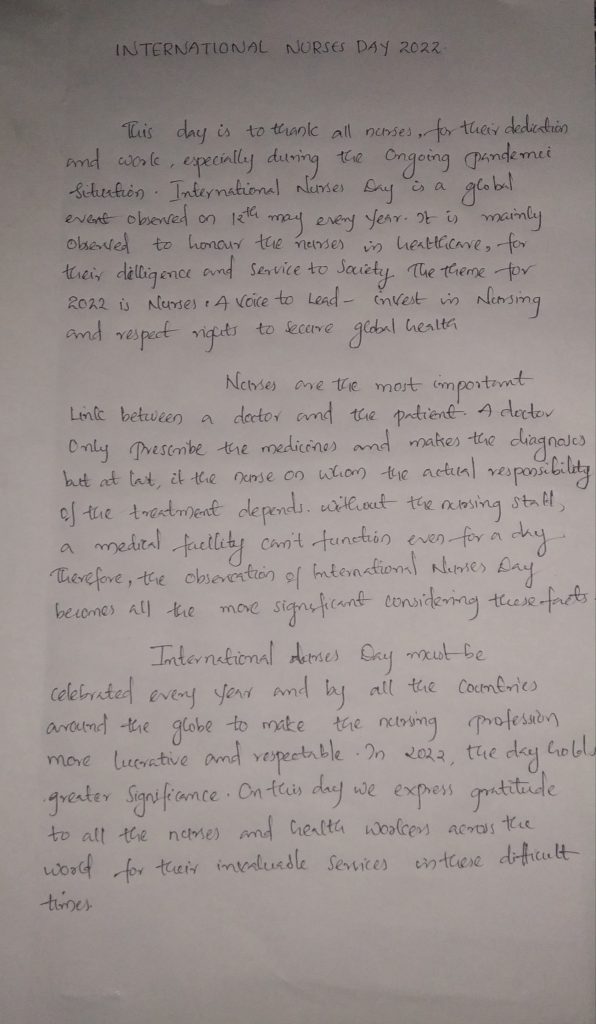 INTERNATIONAL NURSES DAY 2022.
This day is to thank all nurses, for their dedication
and work, especially during the Ongoing pandemic
Situation. International Nurses Day is a global
event observed on 12th may every year. It is mainly
Observed to honour the nurses in healthcare, for
their dilligence and service to Society. The theme for
2022 is Nurses: A Voice to Lead - invest in Nursing
and respect rights to secure global health
Nurses are the most important
Link between a doctor and the patient. A doctor
Only prescribe the medicines and makes the diagnosis
but at last, it the nurse on whom the actual responsibility
of the treatment depends. without the nursing staff,
a medical facility can't function even for a day.
Therefore, the observation of International Nurses Day
becomes all the more significant considering these facts.
International Nurses Day must be
celebrated every year and by all the Countries
around the globe to make the nursing profession
more lucrative and respectable. In 2022, the day holds
greater Significance. On this day we express gratitude
to all the nurses and health workers across the
world for their invaluable Services in these difficult
times.